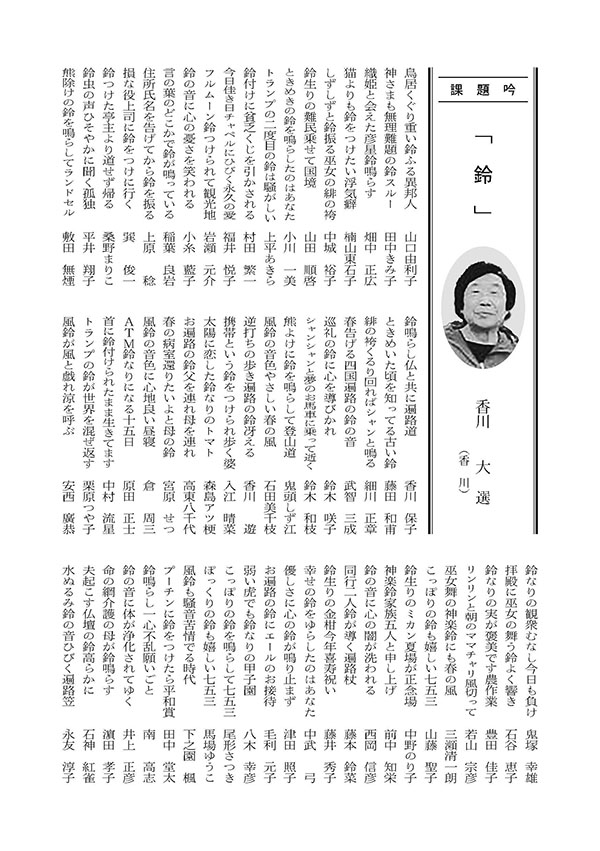 課題吟
「鈴」
香川　大　選
（香川）
鈴鳴らし仏と共に遍路道　香川　保子
ときめいた頃を知ってる古い鈴　藤田　和甫
緋の袴くるり回ればシャンと鳴る　細川　正章
春告げる四国遍路の鈴の音　武智　三成
巡礼の鈴に心を導びかれ　鈴木　咲子
シャンシャンと夢のお馬車に乗って逝く　鈴木　和枝
熊よけに鈴を鳴らして登山道　鬼頭しず江
風鈴の音色やさしい春の風　石田美千枝
逆打ちの歩き遍路の鈴冴える　香川　遊
携帯という鈴をつけられ歩く婆　入江　晴菜
太陽に恋した鈴なりのトマト　森島アツ梗
お遍路の鈴父を連れ母を連れ　高東八千代
春の病室還りたいよと母の鈴　宮原　せつ
風鈴の音色に心地良い昼寝　倉　周三
ＡＴＭ鈴なりになる十五日　原田　正士
首に鈴付けられたまま生きてます　中村　流星
トランプの鈴が世界を混ぜ返す　栗原つや子
風鈴が風と戯れ涼を呼ぶ　安西　廣恭
鳥居くぐり重い鈴ふる異邦人　山口由利子
神さまも無理難題の鈴スルー　田中きみ子
織姫と会えた彦星鈴鳴らす　畑中　正広
猫よりも鈴をつけたい浮気癖　楠山東石子
しずしずと鈴振る巫女の緋の袴　中城　裕子
鈴生りの難民乗せて国境　山田　順啓
ときめきの鈴を鳴らしたのはあなた　小川　一美
トランプの二度目の鈴は騒がしい　上平あきら
鈴付けに貧乏くじを引かされる　村田　繁一
今日佳き日チャペルにひびく永久の愛　福井　悦子
フルムーン鈴つけられて観光地　岩瀬　元介
鈴の音に心の憂さを笑われる　小糸　藍子
言の葉のどこかで鈴が鳴っている　稲葉　良岩
住所氏名を告げてから鈴を振る　上原　稔
損な役上司に鈴をつけに行く　巽　俊一
鈴つけた亭主より道せず帰る　桑野まりこ
鈴虫の声ひそやかに聞く孤独　平井　翔子
熊除けの鈴を鳴らしてランドセル　敷田　無煙
鈴なりの観衆むなし今日も負け　鬼塚　幸雄
拝殿に巫女の舞う鈴よく響き　石谷　恵子
鈴なりの実が褒美です農作業　豊田　佳子
リンリンと朝のママチャリ風切って　若山　宗彦
巫女舞の神楽鈴にも春の風　三瀬清一朗
こっぽりの鈴も嬉しい七五三　山藤　聖子
鈴生りのミカン夏場が正念場　中野のり子
神楽鈴家族五人と申し上げ　前中　知栄
鈴の音に心の闇が洗われる　西岡　信彦
同行二人鈴が導く遍路杖　藤本　鈴菜
鈴生りの金柑今年喜寿祝い　藤井　秀子
幸せの鈴をゆらしたのはあなた　中武　弓
優しさに心の鈴が鳴り止まず　津田　照子
お遍路の鈴にエールのお接待　毛利　元子
弱い虎でも鈴なりの甲子園　八木　幸彦
こっぽりの鈴を鳴らして七五三　尾形さつき
ぽっくりの鈴も嬉しい七五三　馬場ゆうこ
風鈴も騒音苦情でる時代　下之園　楓
プーチンに鈴をつけたら平和賞　田中　堂太
鈴鳴らし一心不乱願いごと　南　高志
鈴の音に体が浄化されてゆく　井上　正彦
命の綱介護の母が鈴鳴らす　濵田　孝子
夫起こす仏壇の鈴高らかに　石神　紅雀
水ぬるみ鈴の音ひびく遍路笠　永友　淳子